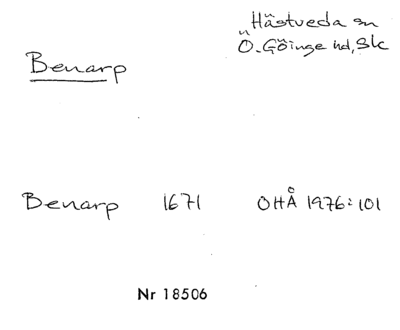 Hästveda sn
Ö. Göinge hd, Sk
Benarp
Benarp 1671 OHÅ 1976:101
Nr 18506